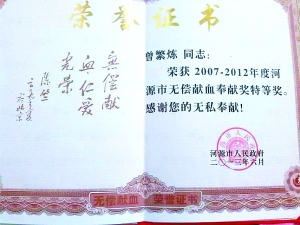 荣誉证书
曾繁炼 同志:
荣获2007-2012年度河
源市无偿献血奉献奖特等奖。
感谢您的无私奉献!
河源市人民政府
二〇一三年六月
无偿献
血仁爱
光荣
无偿献血 荣誉证书